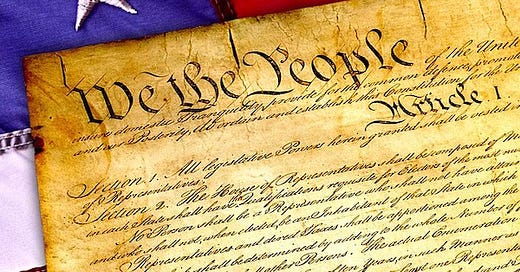 We the People of the United
insure domestic Tranquility, provide for the common defence, promote
and our Posterity, do ordain and establish this Constitution for the
Article I
Section 1. All legislative Powers herein granted shall be vested in
of Representatives.
Section 2. The House of Representatives shall be composed of
in each State shall have Qualifications requisite for Electors of the most
No Person shall be a Representative who shall not have
and who shall not, when elected, be an Inhabitant of that State in which
Representatives and direct Taxes shall be apportioned among the
shall be determined by adding to the whole Number of
other Persons. The actual Enumeration
Years, in such Manner